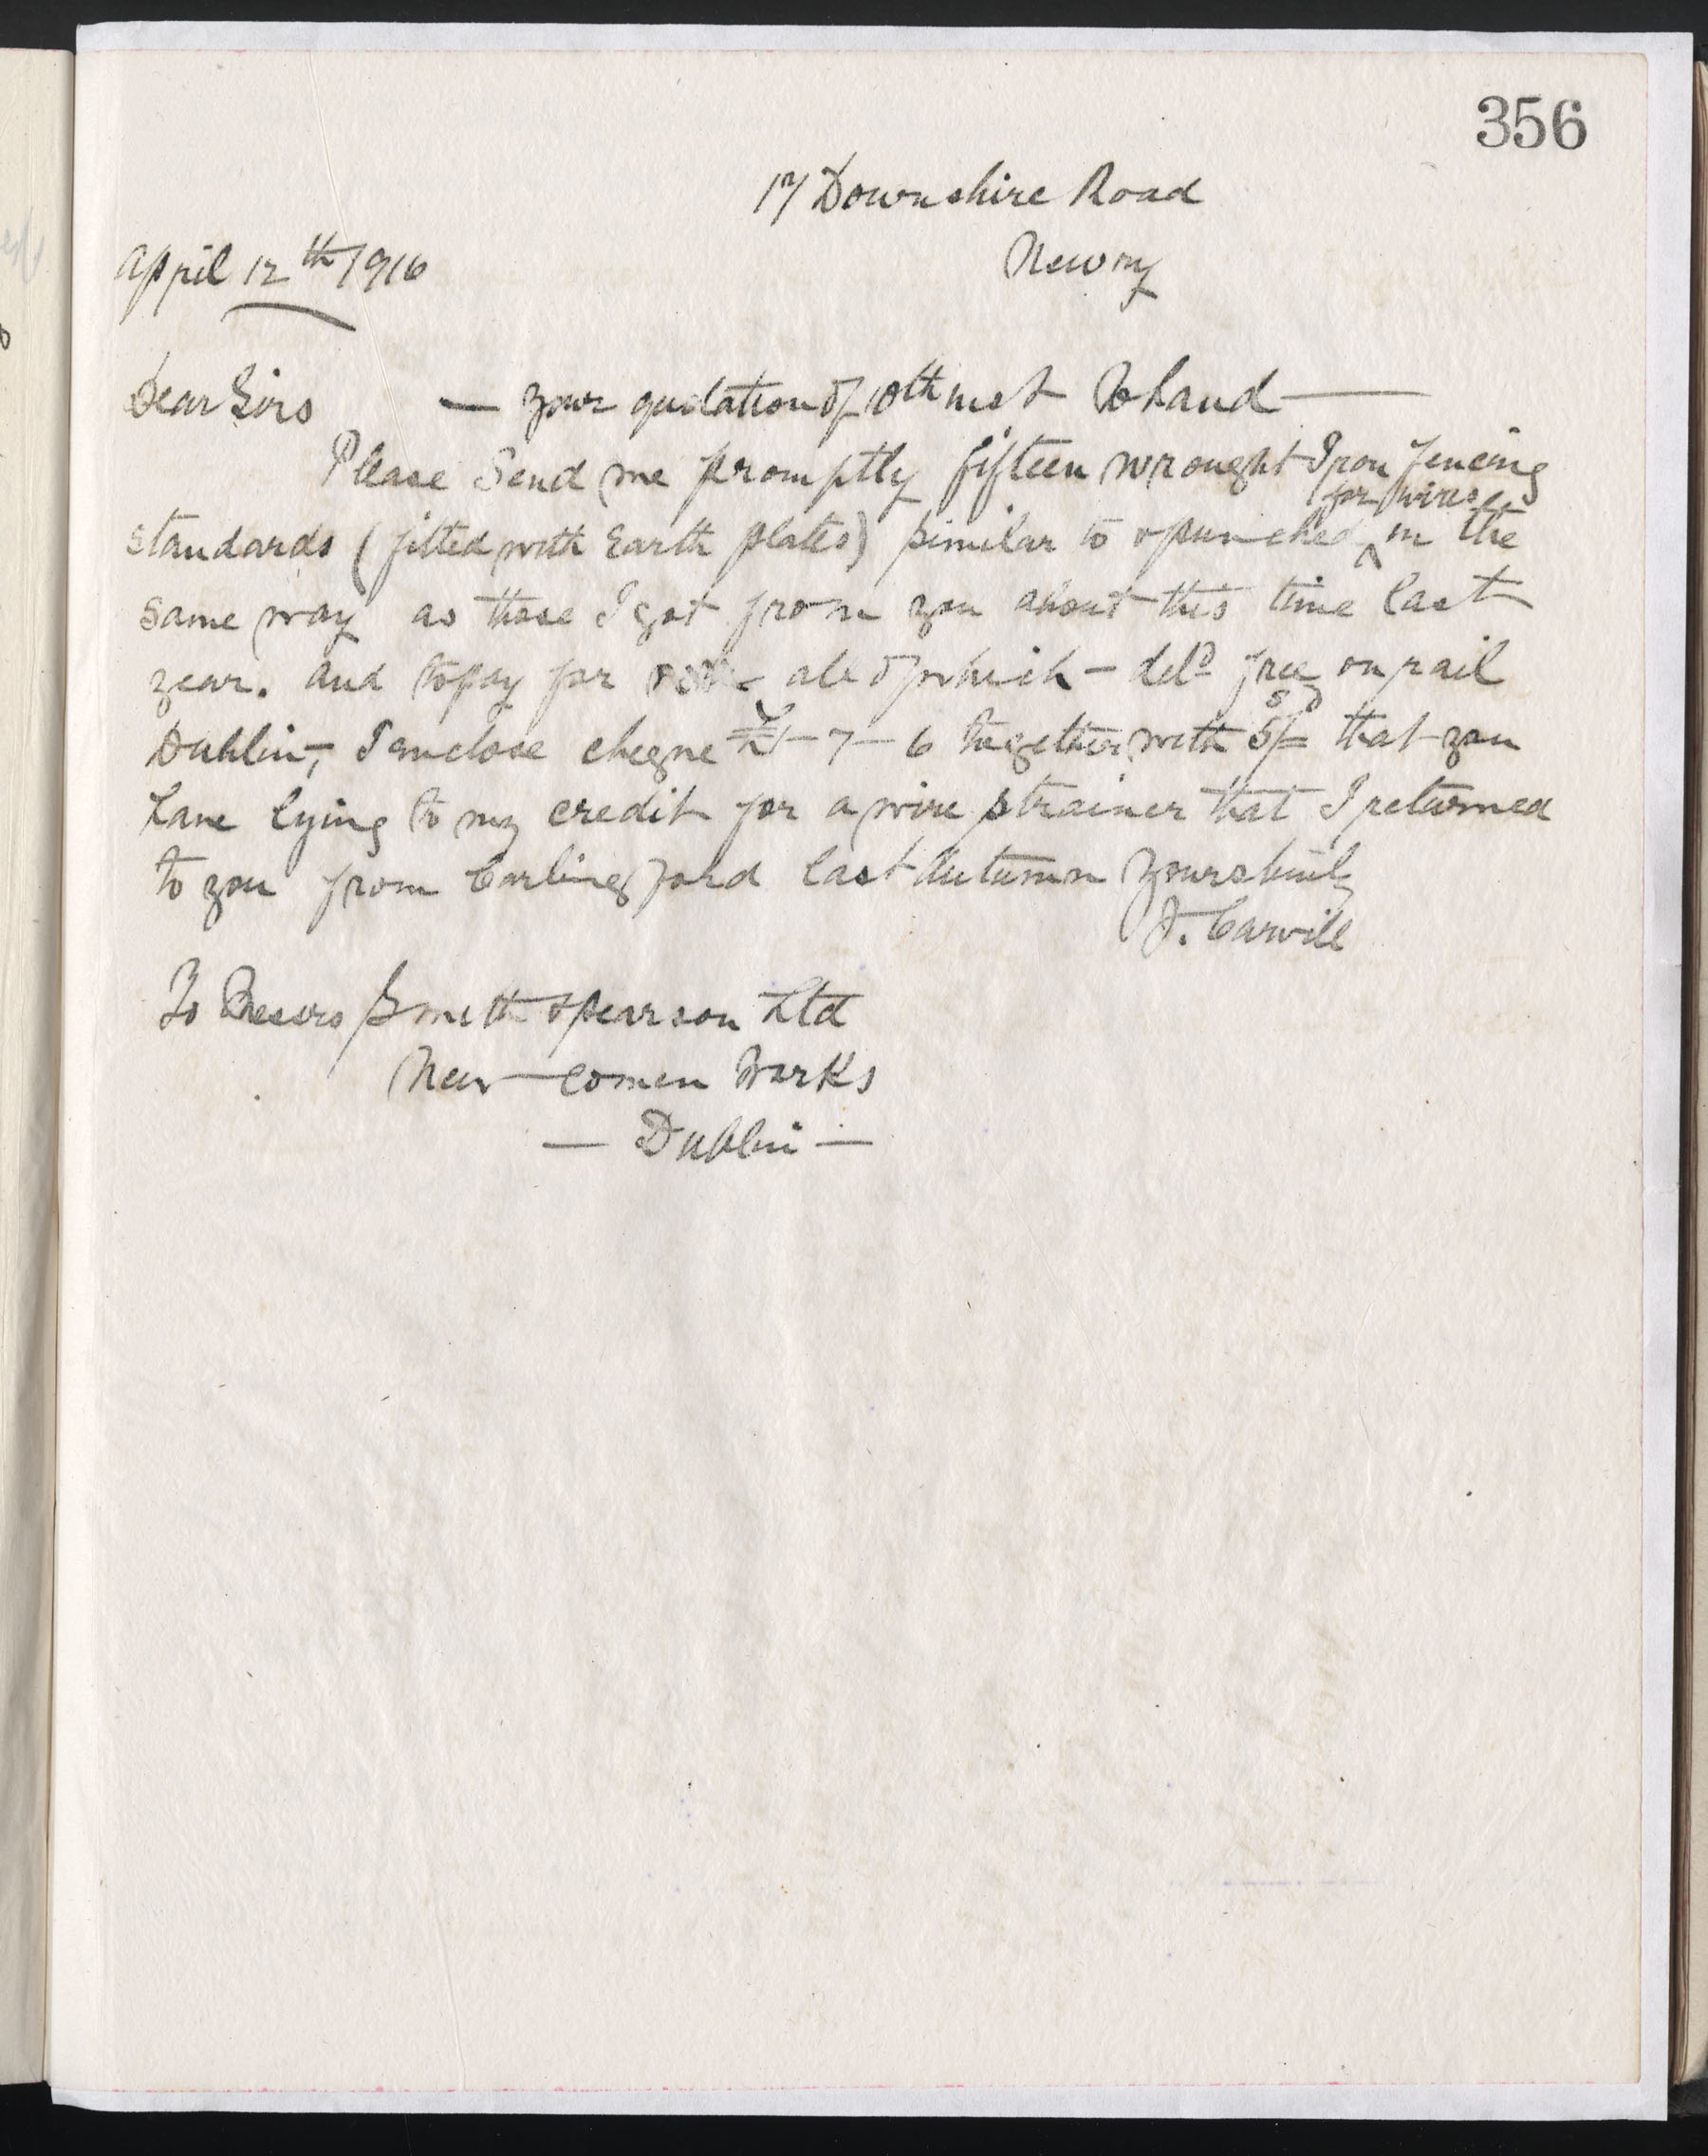 356
17 Downshire Road
Newry
April 12th 1916
Dear Sirs — your quotation of 10th inst to hand —
Please Send me promptly fifteen wrought Iron fencing
for wires
standards (fitted with Earth plates) similar to & punched ^ in the
same way as those I got from you about this time last
year. And to pay for all of which - deld free on rail
Dublin, I enclose cheque £1-7-6 together with 5/= that you
have lying to my credit for a wire strainer that I returned
to you from Carlingford last Autumn Yours truly
J. Carvill
To Messrs Smith & Pearson Ltd
New-comen Works
— Dublin —